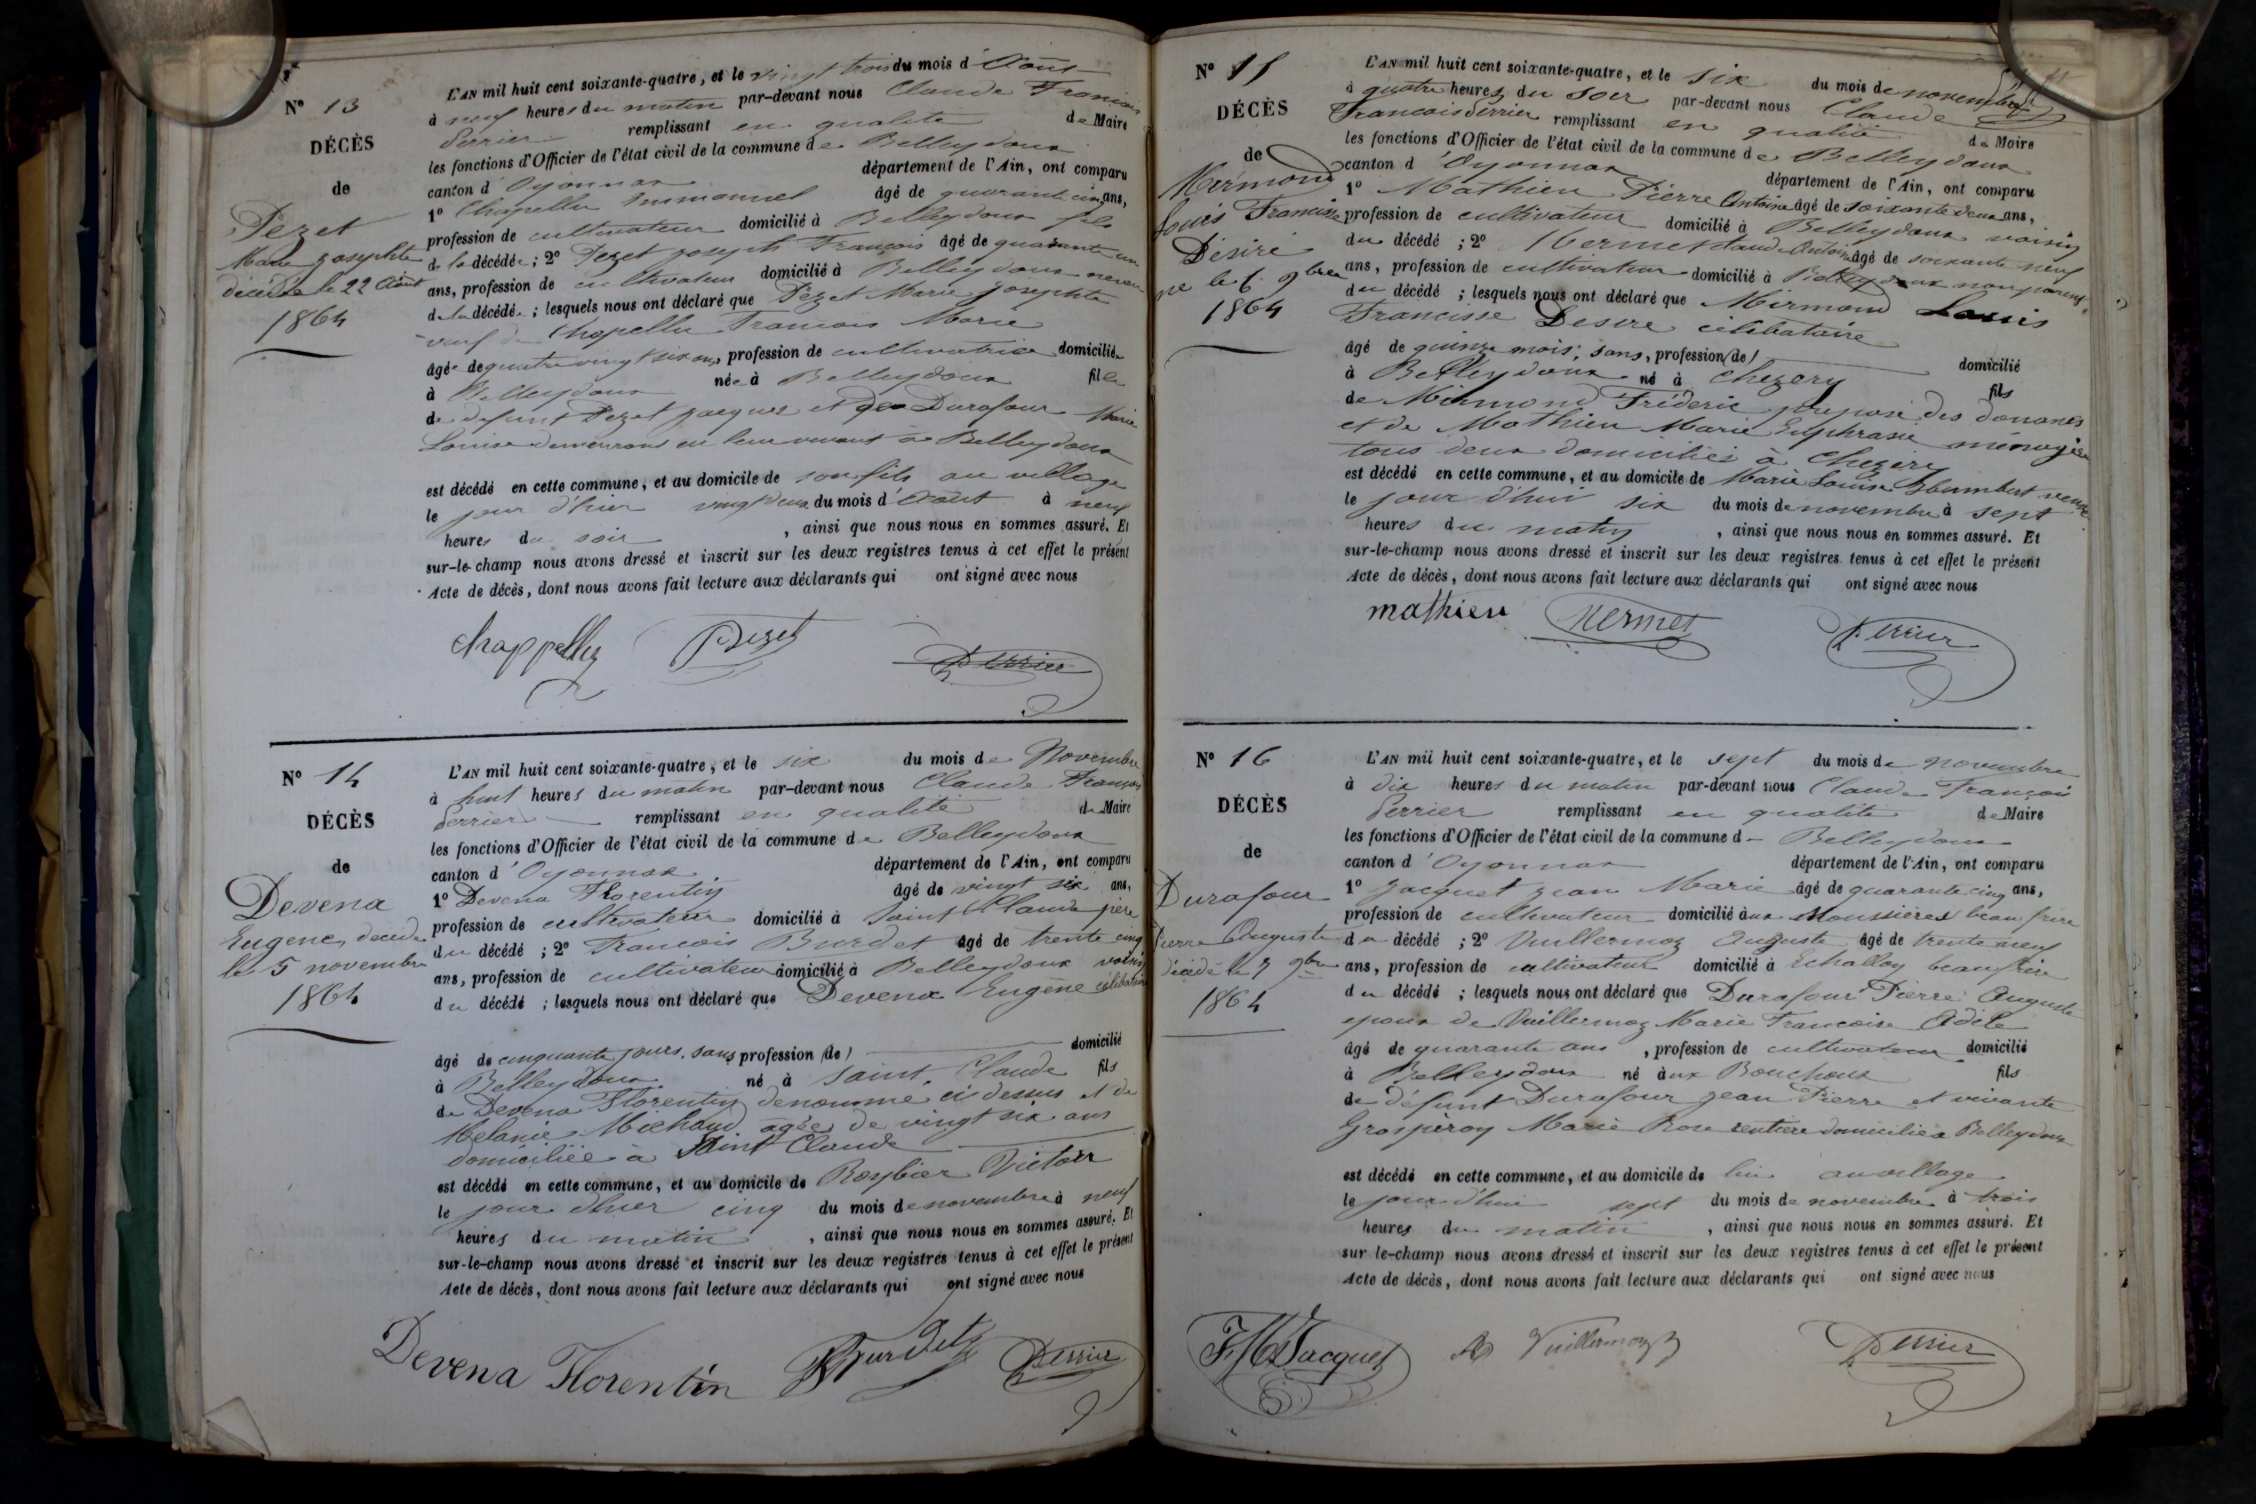 N° 13
DÉCÈS
de
Pezet
Marie Josephte
décédée le 22 Août
1864
L'AN mil huit cent soixante-quatre, et le vingt trois du mois d'Août
à neuf heures du matin par-devant nous Claude François
Perrier remplissant en qualité de Maire
les fonctions d'Officier de l'état civil de la commune de Belleydoux
canton d'Oyonnax département de l'Ain, ont comparu
1° Chapellu Emmanuel âgé de quarante cinq ans,
profession de cultivateur domicilié à Belleydoux fils
de la décédée ; 2° Pezet Joseph François âgé de quarante un
ans, profession de cultivateur domicilié à Belleydoux neveu
de la décédée ; lesquels nous ont déclaré que Pezet Marie Josephte
veuf de Chapellu François Marie
âgée de quatre vingt six ans, profession de cultivatrice domiciliée
à Belleydoux née à Belleydoux fille
de defunt Pezet Jacques et de Durafour Marie
Louise demeurant en leur vivant à Belleydoux
est décédé en cette commune, et au domicile de son fils au village
le jour d'hier vingt deux du mois d'Août à neuf
heures du soir , ainsi que nous nous en sommes assuré. Et
sur-le-champ nous avons dressé et inscrit sur les deux registres tenus à cet effet le présent
Acte de décès, dont nous avons fait lecture aux déclarants qui ont signé avec nous
Pezet Perrier
N° 14
DÉCÈS
de
Devena
Eugene, décédé
le 5 novembre
1864
L'AN mil huit cent soixante-quatre, et le six du mois de Novembre
à huit heures du matin par-devant nous Claude François
Perrier remplissant en qualité de Maire
les fonctions d'Officier de l'état civil de la commune de Belleydoux
canton d'Oyonnax département de l'Ain, ont comparu
1° Devena Florentin âgé de vingt six ans,
profession de cultivateur domicilié à Saint Claude père
du décédé ; 2° François Burdet âgé de trente cinq
ans, profession de cultivateur domicilié à Belleydoux voisin
du décédé ; lesquels nous ont déclaré que Devena Eugene célibataire
âgé de cinquante jours, sans profession (de) domicilié
à Belleydoux né à Saint Claude fils
de Devena Florentin denommé ci dessus et de
Melanie Michaud agée de vingt six ans
domiciliée à Saint Claude
est décédé en cette commune, et au domicile de Roybier Victor
le jour d'hier cinq du mois de novembre à neuf
heures du matin , ainsi que nous nous en sommes assuré. Et
sur-le-champ nous avons dressé et inscrit sur les deux registres tenus à cet effet le présent
Acte de décès, dont nous avons fait lecture aux déclarants qui ont signé avec nous
Devena Florentin Burdet Perrier
N° 15
DÉCÈS
de
Mermond
Louis Francisse
Désiré
le 6 9bre
1864
L'AN mil huit cent soixante-quatre, et le six du mois de novembre
à quatre heures du soir par-devant nous Claude
François Perrier remplissant en qualité de Maire
les fonctions d'Officier de l'état civil de la commune de Belleydoux
canton d'Oyonnax département de l'Ain, ont comparu
1° Mathieu Pierre Antoine âgé de soixante deux ans,
profession de cultivateur domicilié à Belleydoux voisin
du décédé ; 2° Mermet Claude Antoine âgé de soixante neuf
ans, profession de cultivateur domicilié à Belleydoux non parent
du décédé ; lesquels nous ont déclaré que Mermond Louis
Francisse Desire célibataire
âgé de quinze mois, sans, profession (de) domicilié
à Belleydoux né à Chezery fils
de Mermond Fréderic préposé des douanes
et de Mathieu Marie Euphrasie ménagère
tous deux domiciliés à Chezery
est décédé en cette commune, et au domicile de Marie Louise Humbert veuve
le jour d'hui six du mois de novembre à sept
heures du matin , ainsi que nous nous en sommes assuré. Et
sur-le-champ nous avons dressé et inscrit sur les deux registres tenus à cet effet le présent
Acte de décès, dont nous avons fait lecture aux déclarants qui ont signé avec nous
mathieu Mermet Perrier
N° 16
DÉCÈS
de
Durafour
Pierre Auguste
décédé le 7 9bre
1864
L'AN mil huit cent soixante-quatre, et le sept du mois de novembre
à dix heures du matin par-devant nous Claude François
Perrier remplissant en qualité de Maire
les fonctions d'Officier de l'état civil de la commune de Belleydoux
canton d'Oyonnax département de l'Ain, ont comparu
1° Jacquet Jean Marie âgé de quarante cinq ans,
profession de cultivateur domicilié aux Moussières beau frère
du décédé ; 2° Vuillermoz Auguste âgé de trente neuf
ans, profession de cultivateur domicilié à Echallon beau frère
du décédé ; lesquels nous ont déclaré que Durafour Pierre Auguste
epoux de Vuillermoz Marie Françoise Adèle
âgé de quarante ans , profession de cultivateur domicilié
à Belleydoux né aux Bouchoux fils
de défunt Durafour Jean Pierre et vivante
Grospiron Marie Rose rentiere domiciliée à Belleydoux
est décédé en cette commune, et au domicile de lui au village
le jour d'hui sept du mois de novembre à trois
heures du matin , ainsi que nous nous en sommes assuré. Et
sur-le-champ nous avons dressé et inscrit sur les deux registres tenus à cet effet le présent
Acte de décès, dont nous avons fait lecture aux déclarants qui ont signé avec nous
Jacquet Vuillermoz Perrier